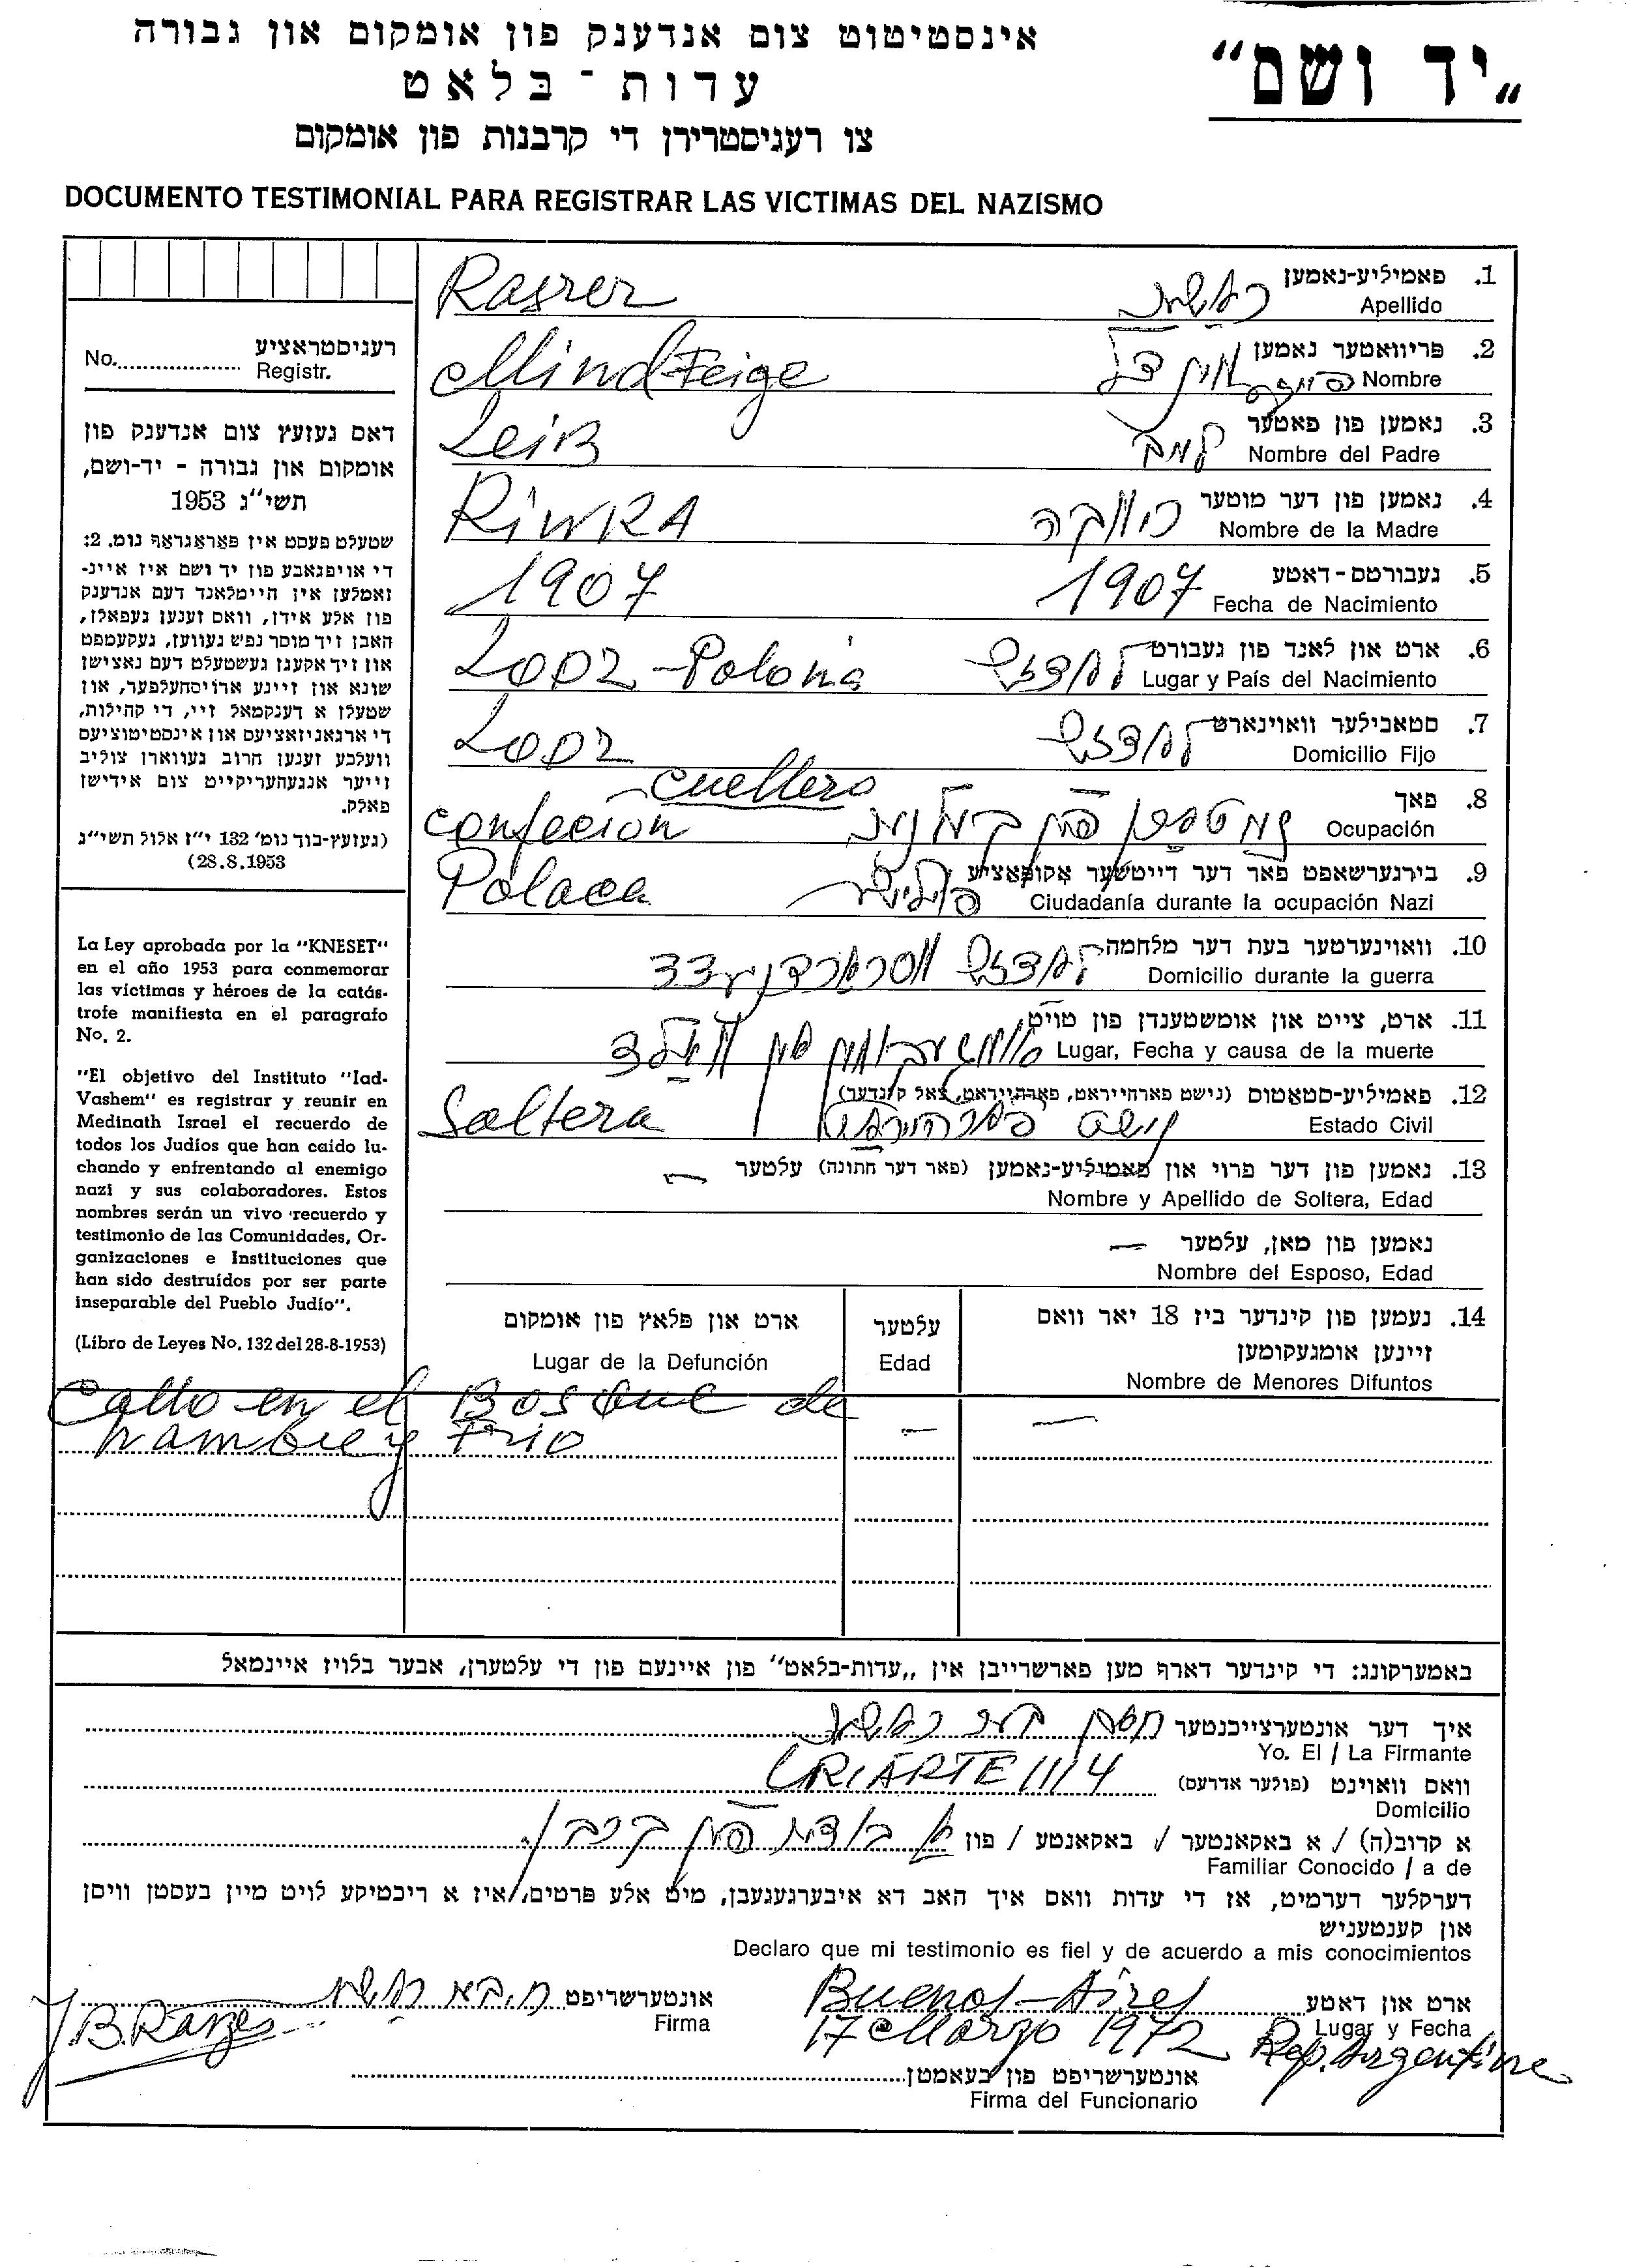 „יד ושם“
אינסטיטוט צום אנדענק פון אומקום און גבורה
עדות-בלאט
צו רעגיסטרירן די קרבנות פון אומקום
DOCUMENTO TESTIMONIAL PARA REGISTRAR LAS VICTIMAS DEL NAZISMO
רעגיסטראציע
No. Registr.
דאס געזעץ צום אנדענק פון
אומקום און גבורה - יד-ושם,
תשי״ג 1953
שטעלט פעסט אין פאראגראף נומ. 2:
די אויפגאבע פון יד ושם איז איינ-
זאמלען אין היימלאנד דעם אנדענק
פון אלע אידן, וואס זענען געפאלן,
האבן זיך מוסר נפש געווען, געקעמפט
און זיך אקעגן געשטעלט דעם נאצישן
שונא און זיינע ארויסהעלפער, און
שטעלן א דענקמאל זיי, די קהילות,
די ארגאניזאציעס און אינסטיטוציעס
וועלכע זענען חרוב געווארן צוליב
זייער אנגעהעריקייט צום אידישן
פאלק.
(געזעץ-בוך נומ׳ 132 י״ז אלול תשי״ג
28.8.1953)
La Ley aprobada por la "KNESET"
en el año 1953 para conmemorar
las víctimas y héroes de la catás-
trofe manifiesta en el paragrafo
No. 2.
"El objetivo del Instituto "Iad-
Vashem" es registrar y reunir en
Medinath Israel el recuerdo de
todos los Judíos que han caído lu-
chando y enfrentando al enemigo
nazi y sus colaboradores. Estos
nombres serán un vivo recuerdo y
testimonio de las Comunidades, Or-
ganizaciones e Instituciones que
han sido destruídos por ser parte
inseparable del Pueblo Judío".
(Libro de Leyes No. 132 del 28-8-1953)
1. פאמיליע-נאמען
Apellido
2. פריוואטער נאמען
Mind Feige Nombre
3. נאמען פון פאטער
Leib לייב Nombre del Padre
4. נאמען פון דער מוטער
Riwka ריווקה Nombre de la Madre
5. געבורטס-דאטע
1907 1907 Fecha de Nacimiento
6. ארט און לאנד פון געבורט
Lodz - Polonia לאדזש Lugar y País del Nacimiento
7. סטאבילער וואוינארט
Lodz לאדזש Domicilio Fijo
8. פאך
confección cuellero Ocupación
9. בירגערשאפט פאר דער דייטשער אקופאציע
Polaca פויליש Ciudadanía durante la ocupación Nazi
10. וואוינערטער בעת דער מלחמה
לאדזש 33 Domicilio durante la guerra
11. ארט, צייט און אומשטענדן פון טויט
אין וואלד Lugar, Fecha y causa de la muerte
12. פאמיליע-סטאטוס (נישט פארהייראט, פארהייראט, צאל קינדער)
Soltera נישט פארהייראט Estado Civil
13. נאמען פון דער פרוי און פאמיליע-נאמען (פאר דער חתונה) עלטער —
Nombre y Apellido de Soltera, Edad
נאמען פון מאן, עלטער —
Nombre del Esposo, Edad
14. נעמען פון קינדער ביז 18 יאר וואס
זיינען אומגעקומען
Nombre de Menores Difuntos
עלטער
Edad
ארט און פלאץ פון אומקום
Lugar de la Defunción
— —
Callo en el Bosque de
hambre y Frio
באמערקונג: די קינדער דארף מען פארשרייבן אין „עדות-בלאט“ פון איינעם פון די עלטערן, אבער בלויז איינמאל
איך דער אונטערצייכנטער
Yo. El / La Firmante
וואס וואוינט (פולער אדרעס) URIARTE 1114
Domicilio
א קרוב(ה) / א באקאנטער / באקאנטע / פון
Familiar Conocido / a de
דערקלער דערמיט, אז די עדות וואס איך האב דא איבערגעגעבן, מיט אלע פרטים, איז א ריכטיקע לויט מיין בעסטן וויסן
און קענטעניש
Declaro que mi testimonio es fiel y de acuerdo a mis conocimientos
ארט און דאטע Buenos-Aires
Lugar y Fecha 17 Marzo 1972 Rep. Argentine
אונטערשריפט
Firma
אונטערשריפט פון באאמטן
Firma del Funcionario